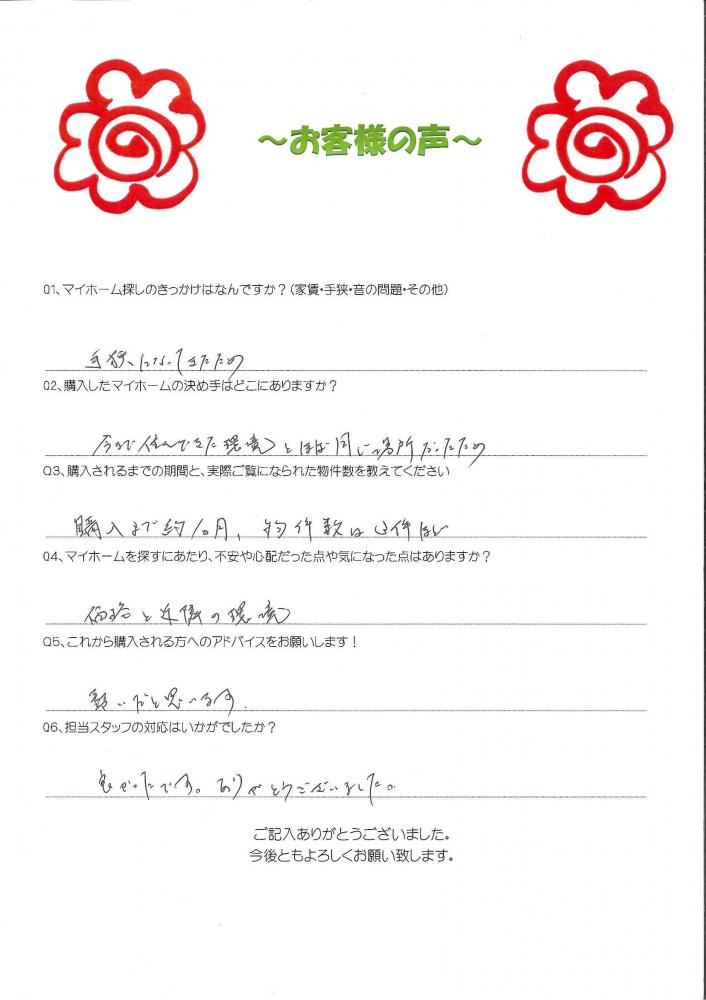 ~お客様の声~
Q1、マイホーム探しのきっかけはなんですか?(家賃・手狭・音の問題・その他)
手狭になってきたため
Q2、購入したマイホームの決め手はどこにありますか?
今まで住んできた環境とほぼ同じ場所だったため
Q3、購入されるまでの期間と、実際ご覧になられた物件数を教えてください
購入まで約1ヵ月、物件数は3件ほど
Q4、マイホームを探すにあたり、不安や心配だった点や気になった点はありますか?
価格と近隣の環境
Q5、これから購入される方へのアドバイスをお願いします!
だと思います。
Q6、担当スタッフの対応はいかがでしたか?
良かったです。ありがとうございました。
ご記入ありがとうございました。
今後ともよろしくお願い致します。